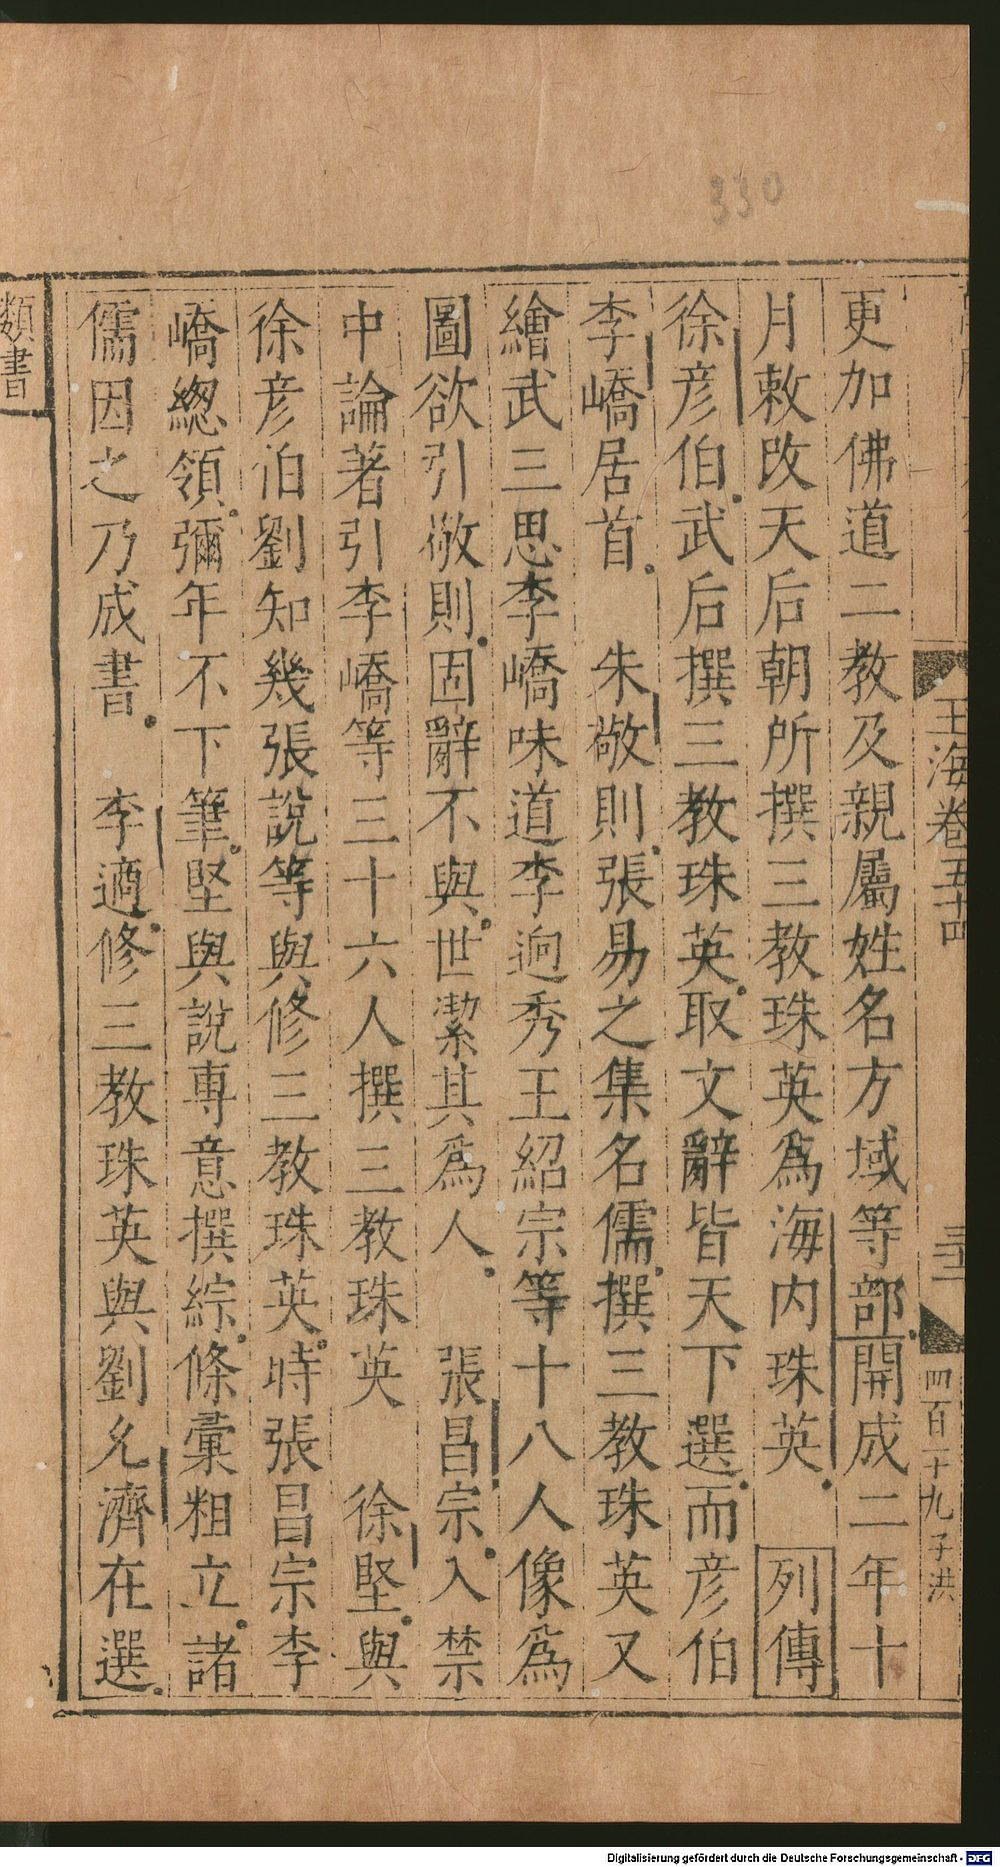 玉海卷五十四
四百二十九子洪
更加佛道二教及親屬姓名方域等部開成二年十
月敕改天后朝所撰三教珠英爲海内珠英 列傳
徐彦伯武后撰三教珠英取文辭皆天下選而彦伯
李嶠居首 朱敬則張易之集名儒撰三教珠英又
繪武三思李嶠味道李迥秀王紹宗等十八人像爲
圖欲引敬則固辭不與世潔其爲人 張昌宗入禁
中論著引李嶠等三十六人撰三教珠英 徐堅與
徐彦泊劉知幾張說等與修三教珠英時張昌宗李
嶠緫領彌年不下筆堅與說専意撰綜條彙粗立諸
儒因之乃成書 李適修三教珠英與劉允濟在選
類書
330
Digitalisierung gefördert durch die Deutsche Forschungsgemeinschaft - DFG